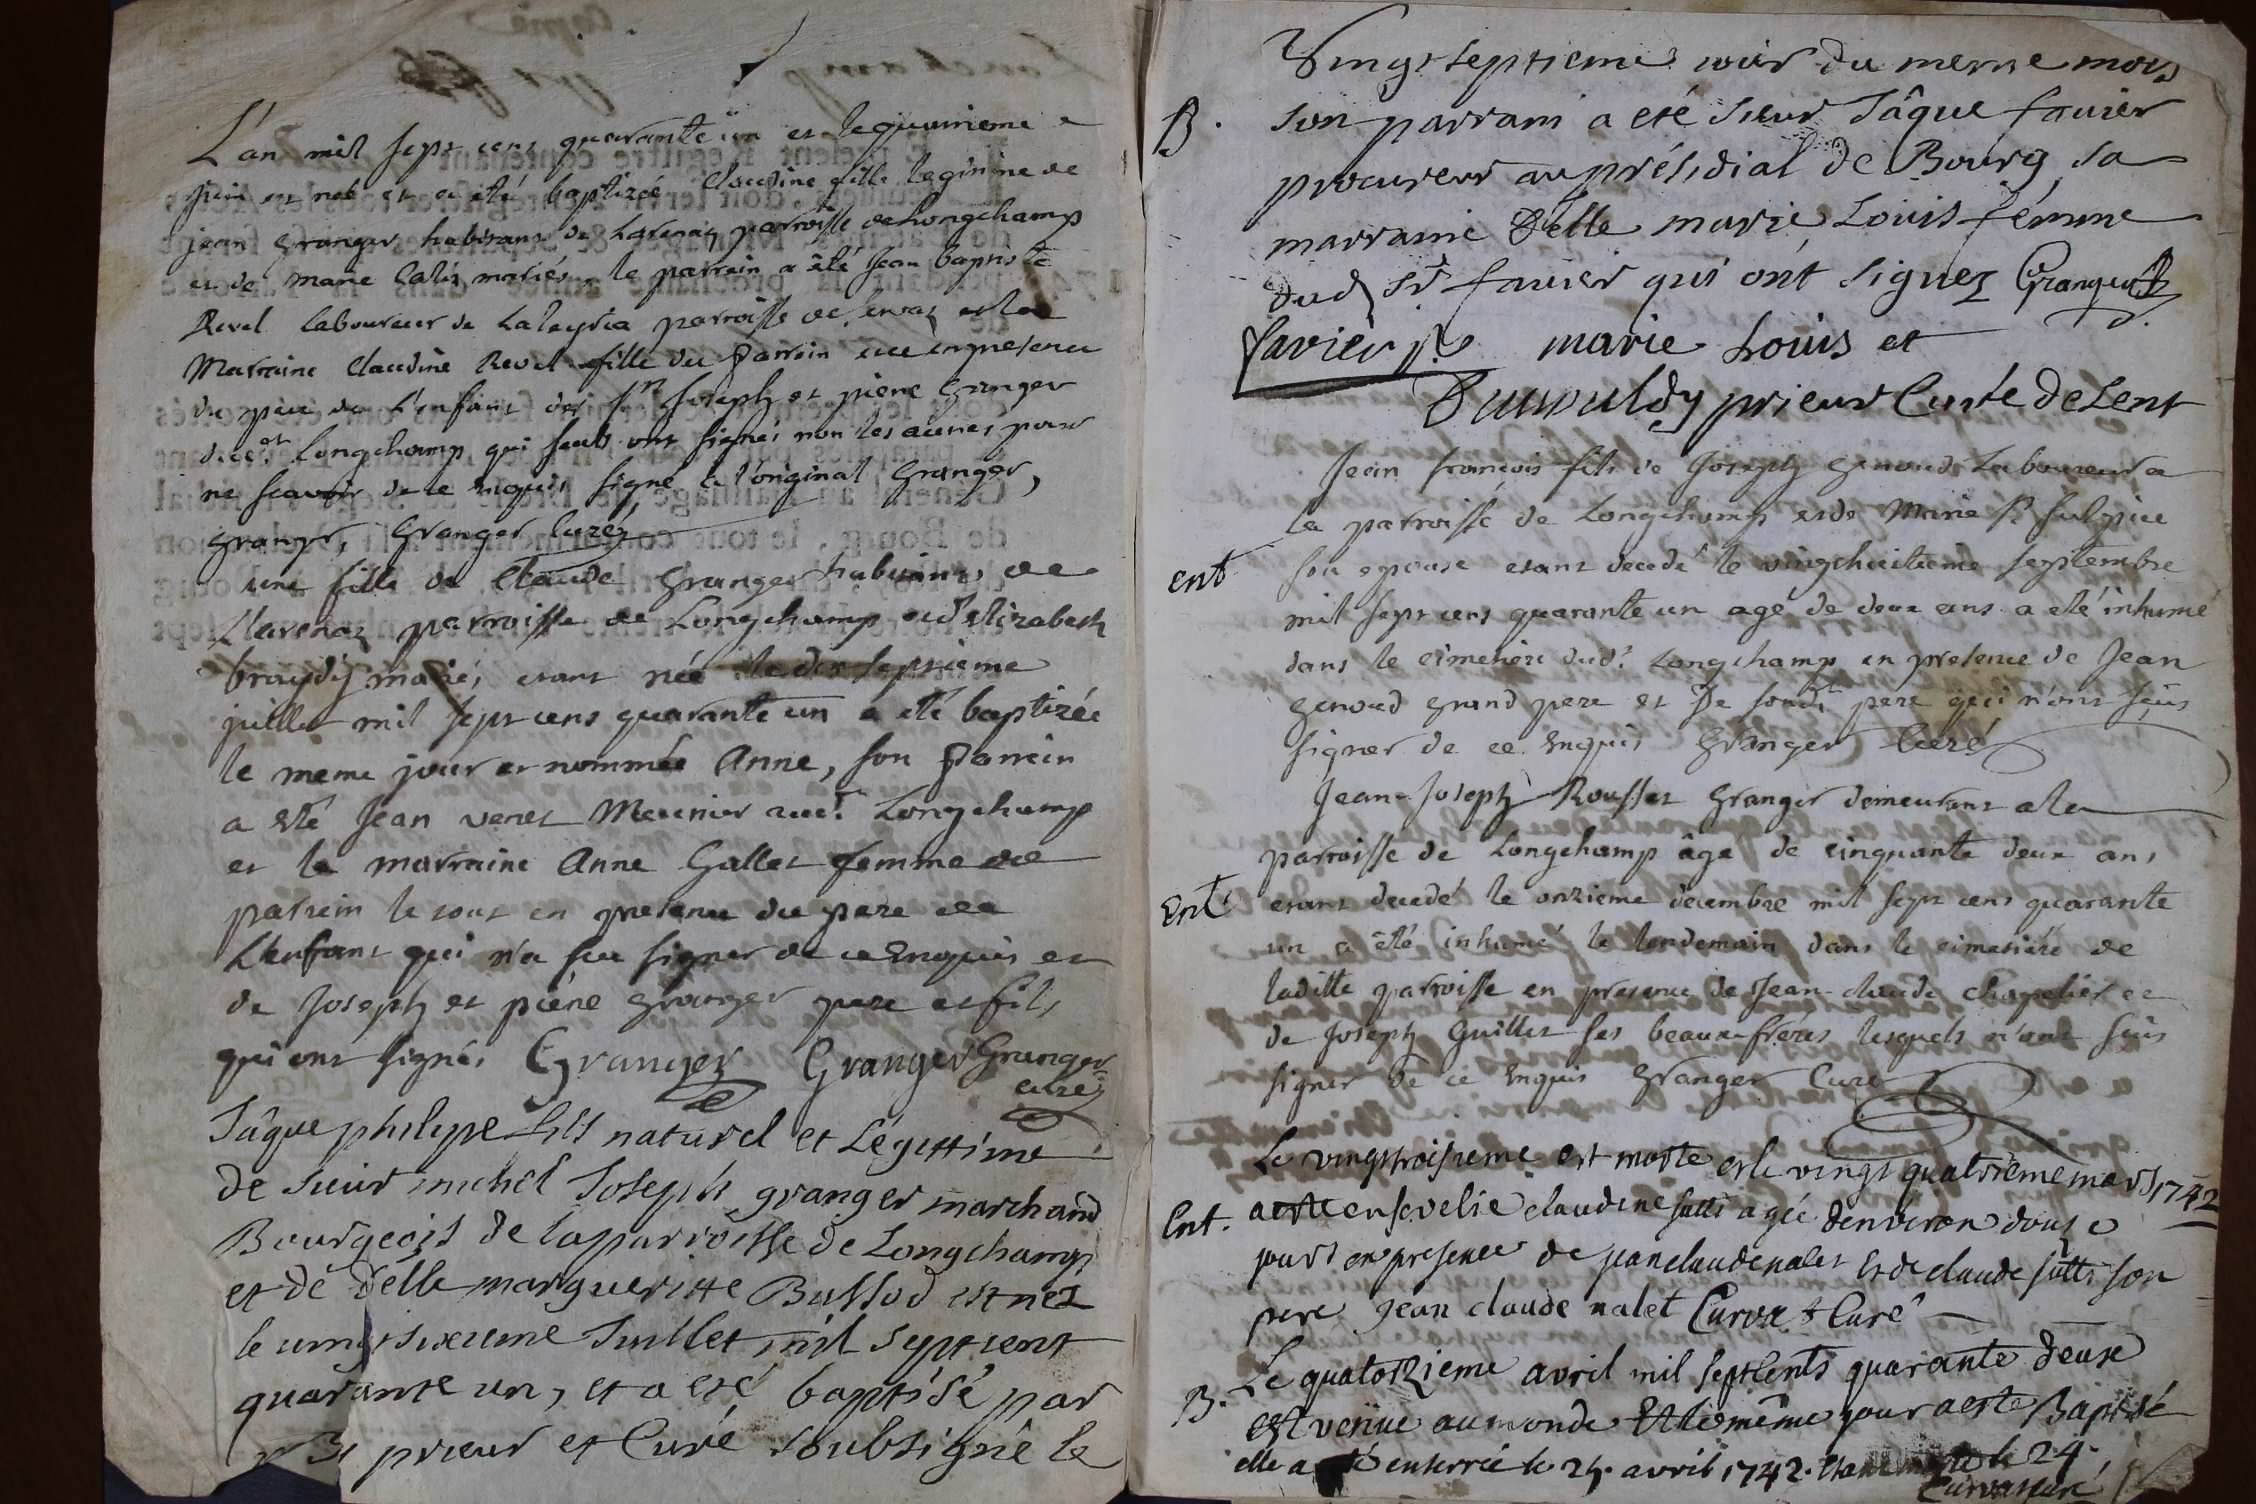 L'an mil sept cens quarante un et le quinzieme
juin est née et a été baptizée Claudine fille legitime de
jean Granger habitant de Lavenaz parroisse de Longchamp
et de Marie mariés, le parrein a été Jean baptiste
Revel Laboureur de parroisse de et la
Marraine Claudine Revel fille du Parrein en presence
du père de l'enfant des Srs Joseph et piere Granger
dudt Longchamp qui seuls ont signés non les autres pour
ne scavoir de ce enquis signé a l'original Granger,
Granger, Granger Curéz
une fille de Claude Granger habitant de
parroisse de Longchamp et d'Elizabeth
mariés etant née le dix septieme
juillet mil sept cens quarante un a été baptizée
le meme jour et nommée Anne, son Parrein
a été Jean venet Meunier audt Longchamp
et la marraine Anne Gallet femme de
parrein le tout en presence du pere de
L'enfant qui n'a scu signer de ce Enquis et
de Joseph et piére Granger pere et fils
qui ont signés Granger Granger Granger
curéz
Jâque philipe fils naturel et Légittime
de sieur michel Joseph granger marchand
Bourgeois de la parroisse de Longchamp
et de délle margueritte Bussod est nez
le vingt sixieme Juillet mil septcent
quarante un, et a eté baptisé par
prieur et Curé soubsigné le
Vingt septieme jour du meme mois
B. son parrain a eté sieur Jâque favier
procureur au présidial de Bourg, sa
marraine Délle marie Louis femme
dud sr favier qui ont signez Granger
favier marie Louis et
prieur Curé de Lent
Jean françois fils de Joseph Genoud Laboureur a
la parroisse de Longchamp et de Marie st sulpice
ent son epouse etant decedé le vingthuitieme septembre
mil sept cens quarante un agé de deux ans a été inhumé
dans le cimetiére dudt Longchamp en presence de Jean
Genoud grand pere et De sondt pere qui n'ont sçus
signer de ce enquis Granger Curé
Jean-Joseph Rousset Granger demeurant a la
parroisse de Longchamp âgé de cinquante deux ans
Ent etant decedé le onzieme decembre mil sept cens quarante
un a été inhumé le lendemain dans le cimetiére de
laditte parroisse en presence de Jean-claude Chapelier et
de Joseph Guillet ses beaux-fréres lesquels n'ont sçus
signer de ce enquis Granger Curé
Le vingttroisieme est morte et le vingt quatrieme mars 1742
Ent. a esté ensevelie claudine agée denviron douze
jours en presence de jean claude nalet et de claude son
pere jean claude nalet Curvat Curé
B. Le quatorzieme avril mil septcents quarante deux
est venüe au monde et le même jour a esté Baptisé
elle a eté enterrée le 25. avril 1742. etant morte le 24.